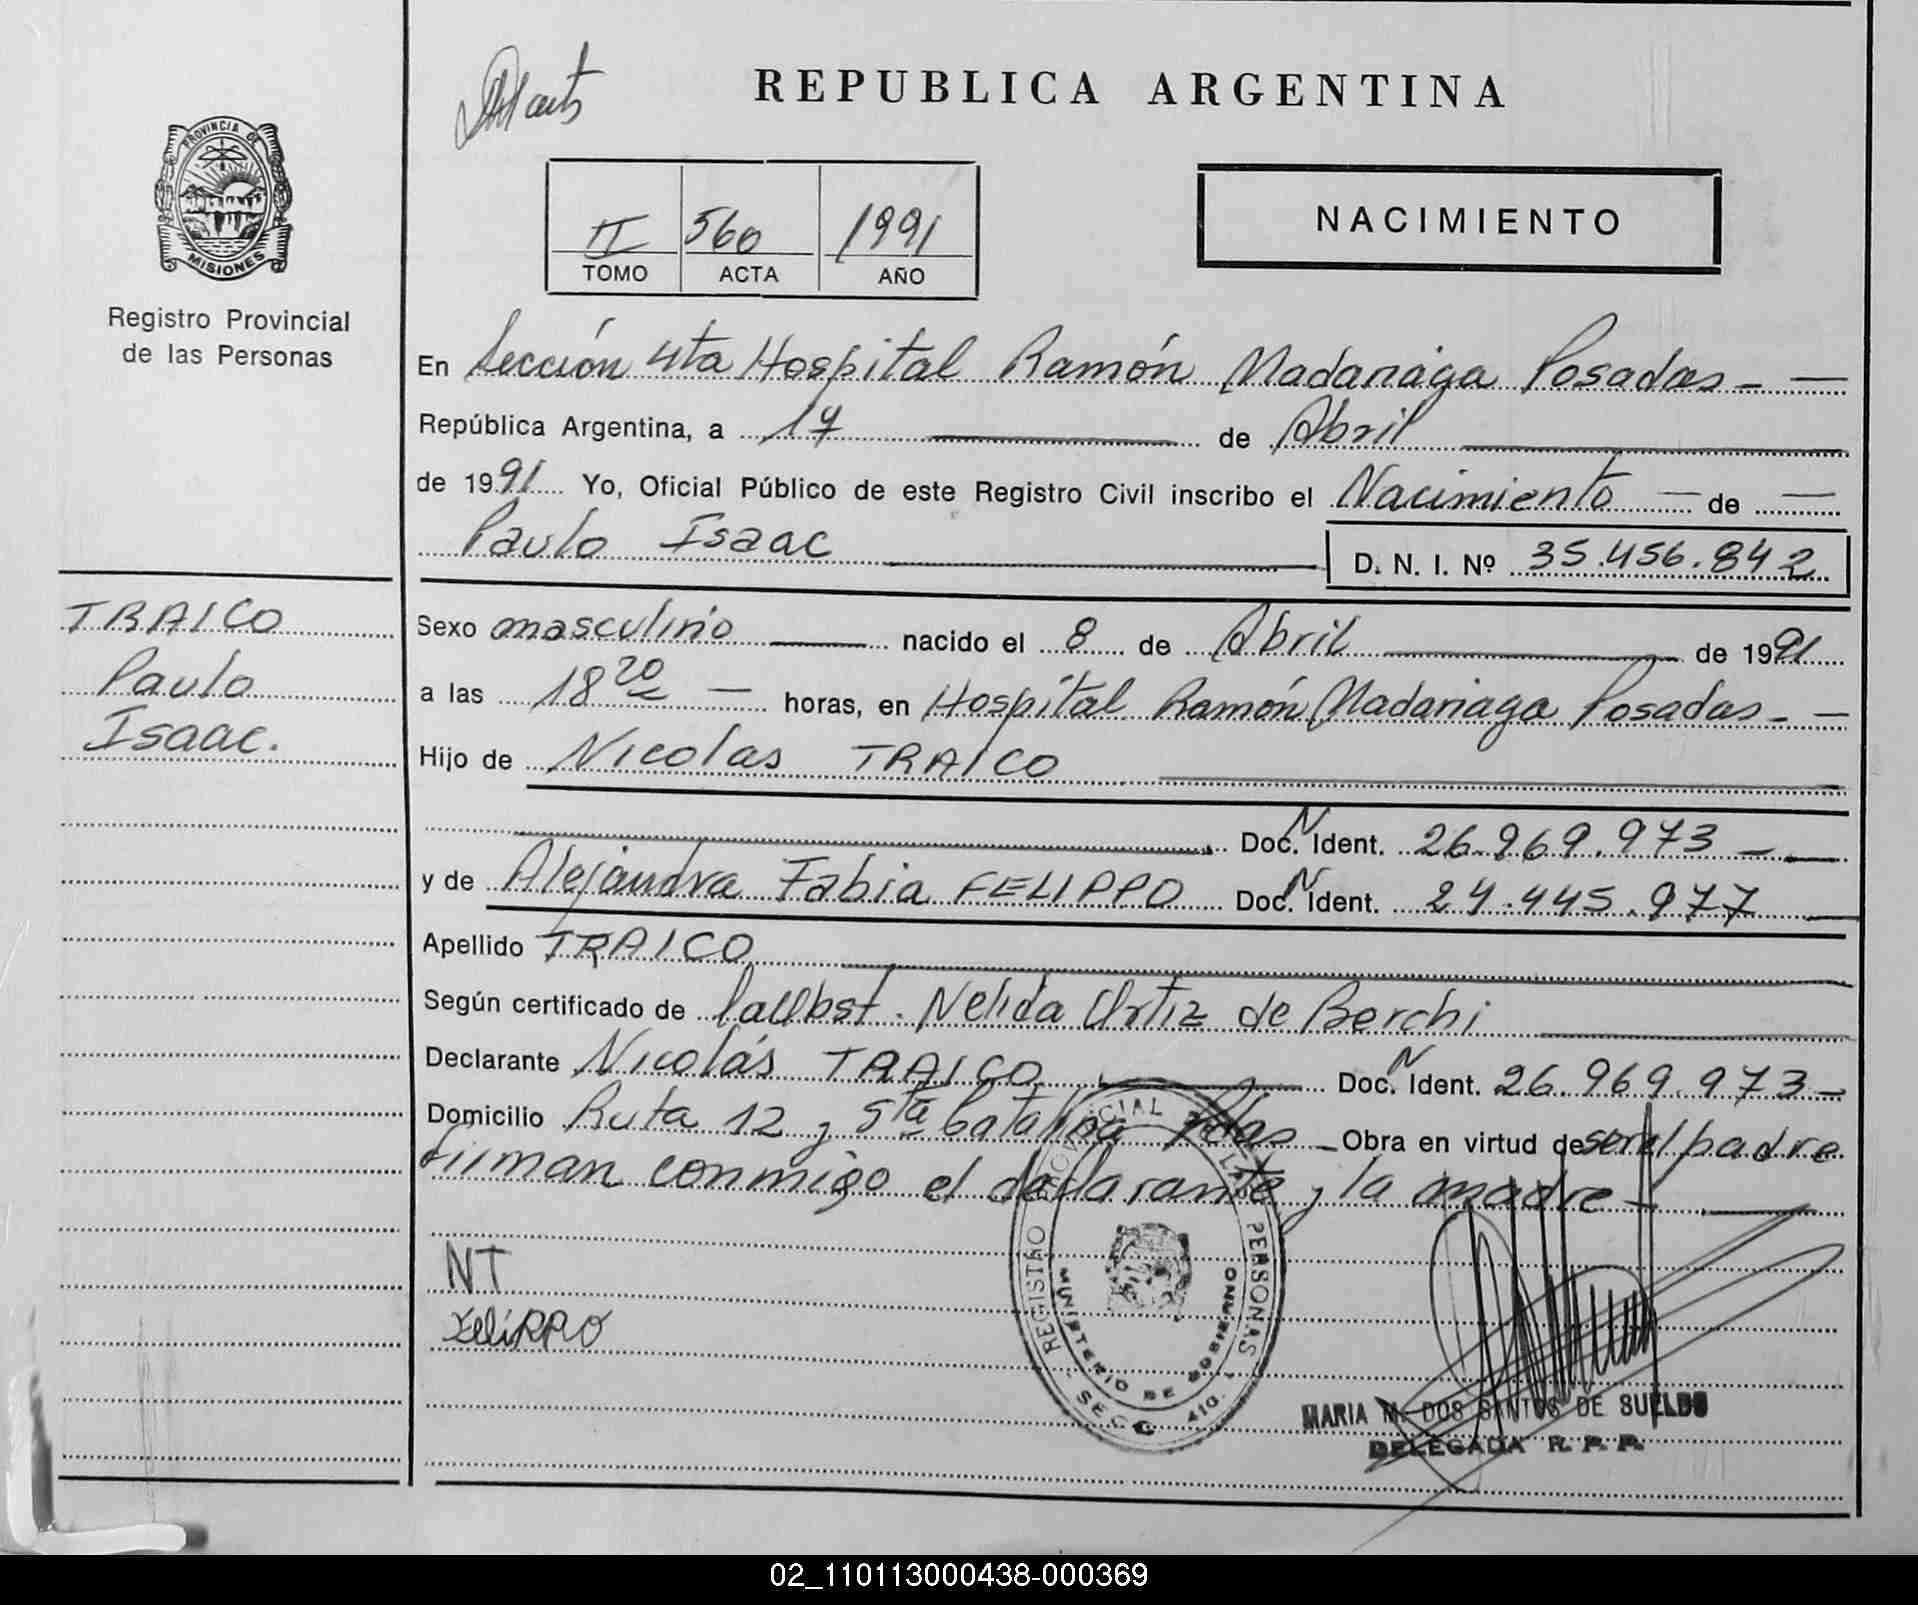 REPUBLICA ARGENTINA
PROVINCIA DE
MISIONES
Registro Provincial
de las Personas
II 560 1991
TOMO ACTA AÑO
NACIMIENTO
En Sección 4ta Hospital Ramón Madariaga Posadas
República Argentina, a 17 de Abril
de 1991 Yo, Oficial Público de este Registro Civil inscribo el Nacimiento de
Paulo Isaac
D. N. I. Nº 35.456.842
TRAICO
Paulo
Isaac.
Sexo masculino nacido el 8 de Abril de 1991
a las 18 20 horas, en Hospital Ramón Madariaga Posadas
Hijo de Nicolas TRAICO
Doc. N Ident. 26.969.973
y de Alejandra Fabia FELIPPO Doc. N Ident. 24.445.977
Apellido TRAICO
Según certificado de Obst. Nelida Ortiz de Berchi
Declarante Nicolás TRAICO Doc. N Ident. 26.969.973
Domicilio Ruta 12 y Sta Catalina Pdas Obra en virtud de ser el padre
firman conmigo el declarante y la madre
NT
FeliPPO
REGISTRO PROVINCIAL PERSONAS
MINISTERIO DE GOBIERNO
MARIA M. DOS SANTOS DE SUELDO
DELEGADA R. P. P.
02_110113000438-000369